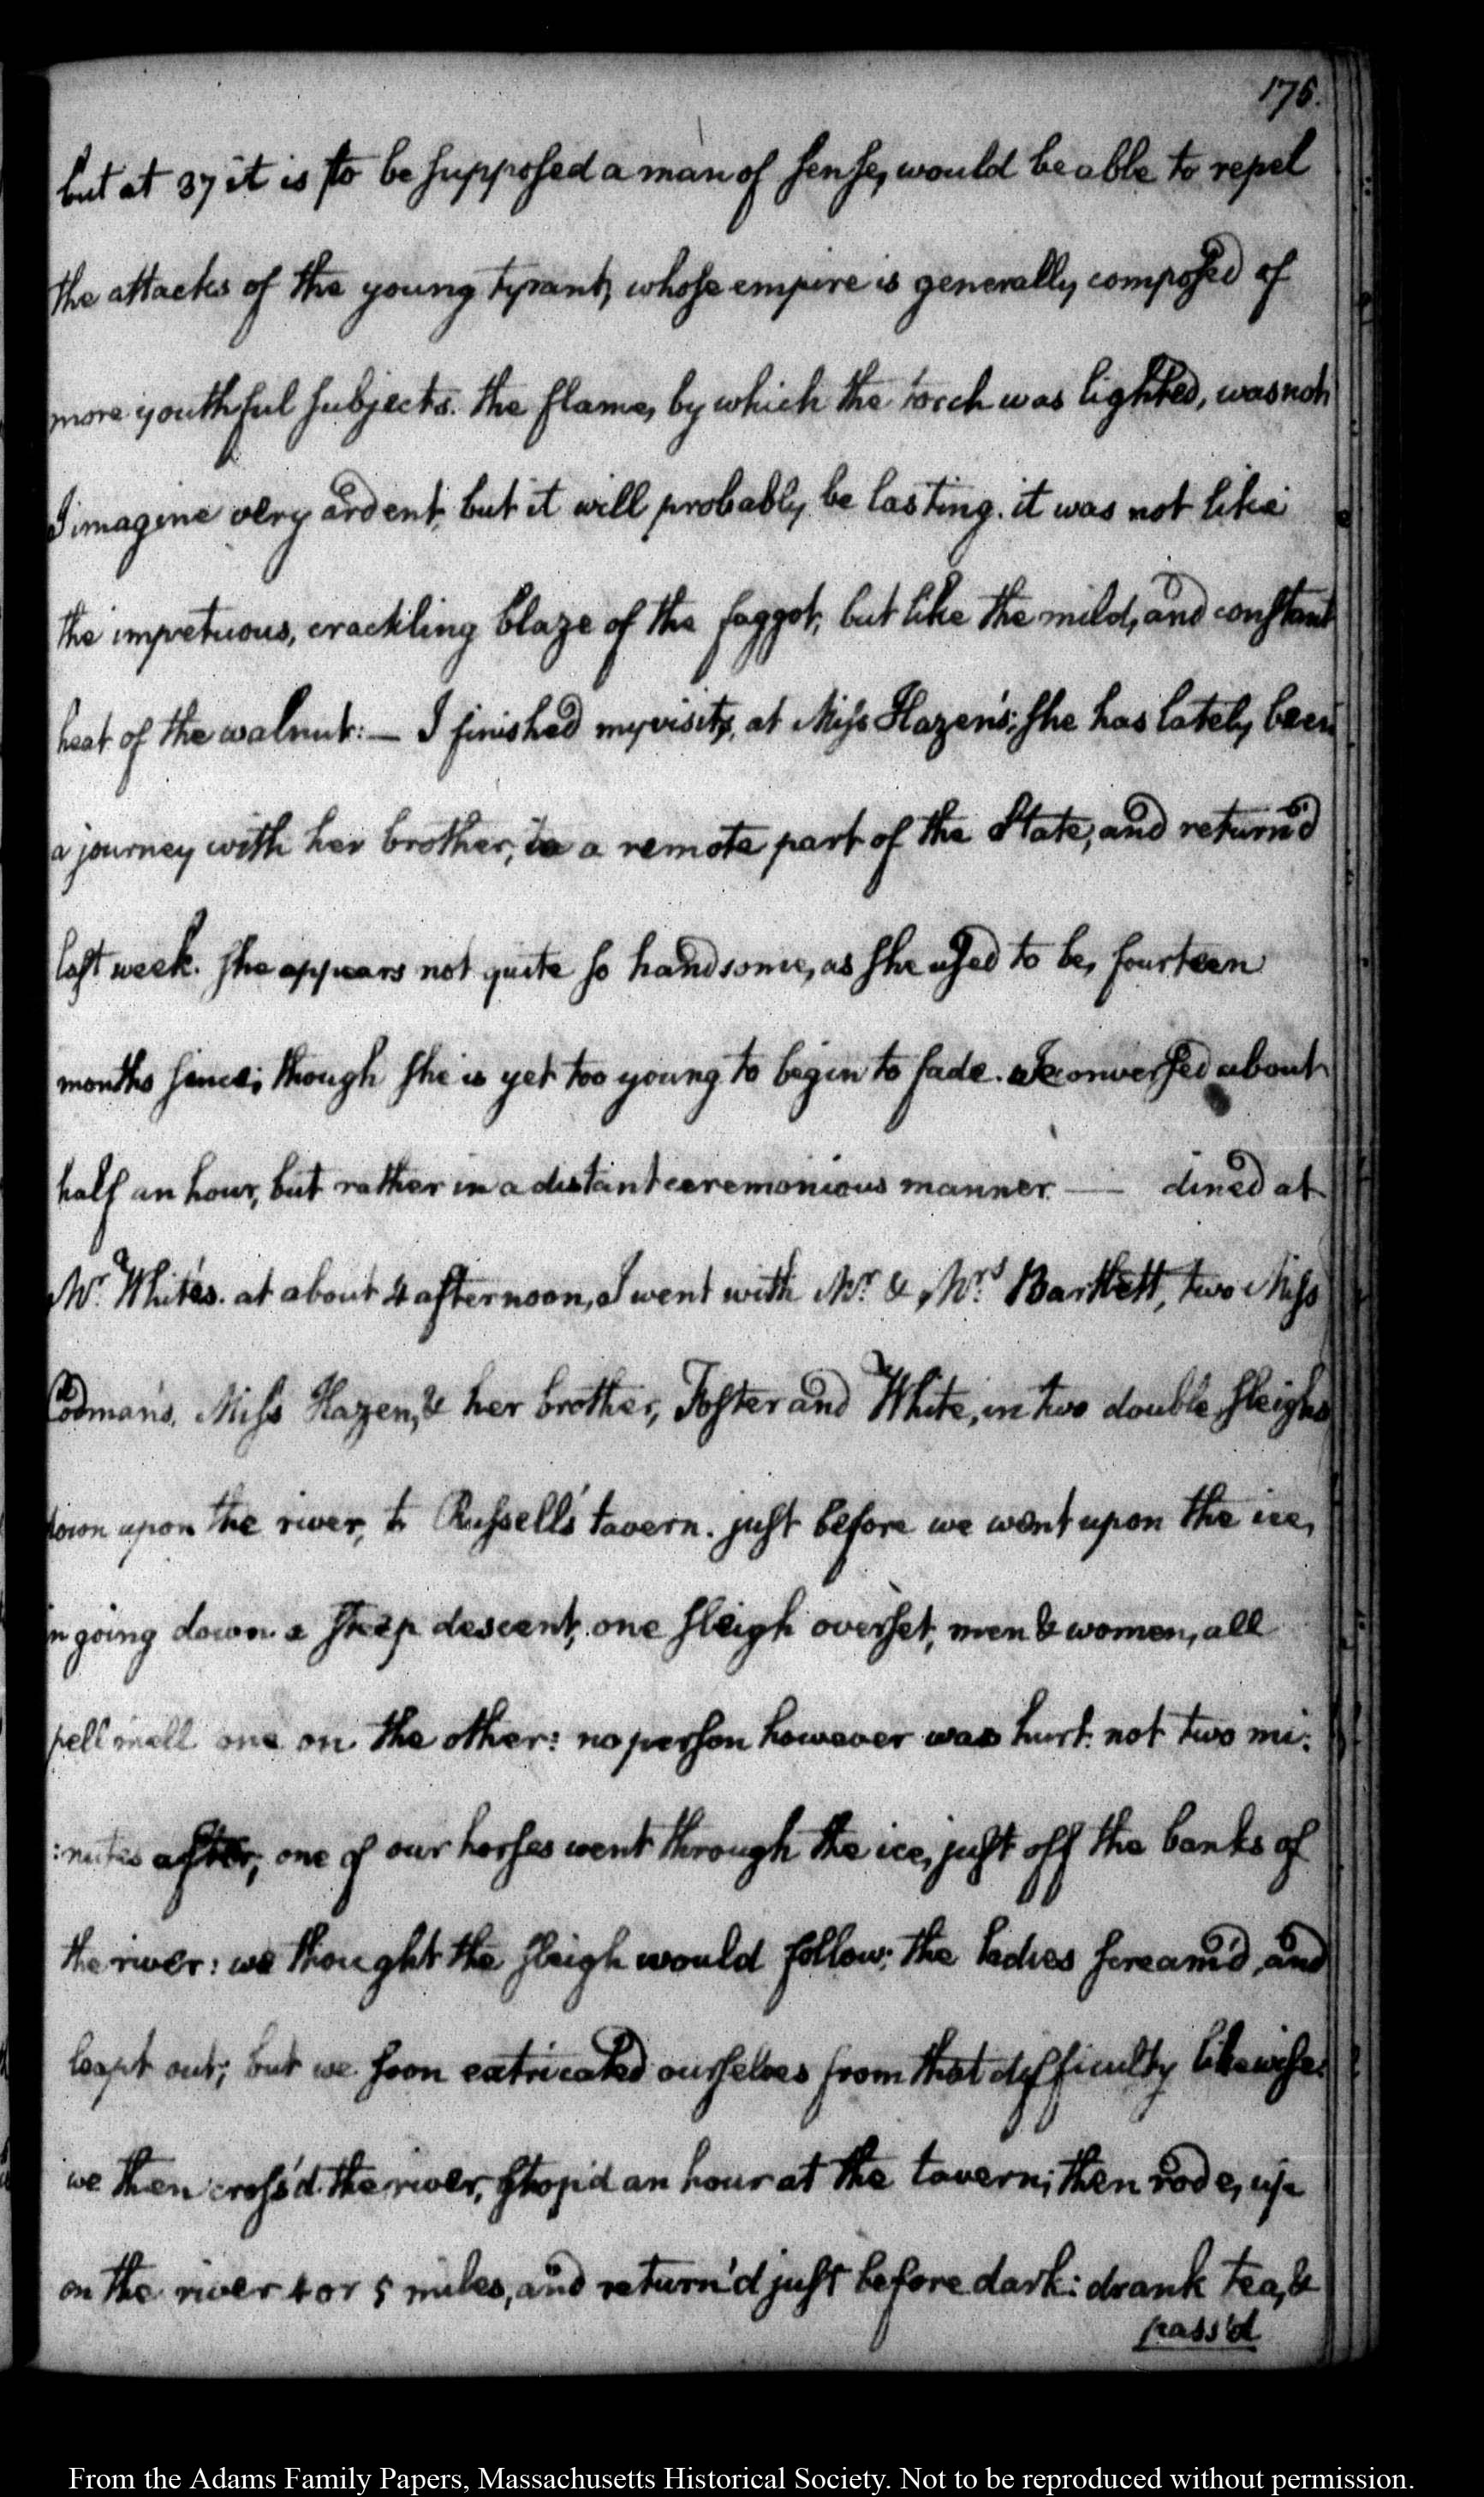 175.
but at 37 it is to be supposed a man of sense, would be able to repel
the attacks of the young tyrant, whose empire is generally composed of
more youthful subjects. the flame, by which the torch was lighted, was not
I imagine very ardent, but it will probably be lasting. it was not like
the impetuous, crackling blaze of the faggot, but like the mild, and constant
heat of the walnut:— I finished my visits, at Miss Hazen's; she has lately been
a journey with her brother, to a remote part of the State, and return'd
last week. she appears not quite so handsome, as she used to be, fourteen
months since; though she is yet too young to begin to fade. We conversed about
half an hour, but rather in a distant ceremonious manner. — dined at
Mr. White's. at about 4 afternoon, I went with Mr. & Mrs Bartlett, two Miss
Codman's, Miss Hazen, & her brother, Foster and White, in two double sleighs
down upon the river, to Russell's tavern. just before we went upon the ice,
in going down a steep descent, one sleigh overset, men & women, all
pell mell one on the other: no person however was hurt. not two mi:
:nutes after, one of our horses went through the ice, just off the banks of
the river: we thought the sleigh would follow: the ladies scream'd, and
leapt out; but we soon extricated ourselves from that difficulty likewise.
we then cross'd the river, stop'd an hour at the tavern; then rode, up
on the river 4 or 5 miles, and return'd just before dark: drank tea, &
pass'd
From the Adams Family Papers, Massachusetts Historical Society. Not to be reproduced without permission.